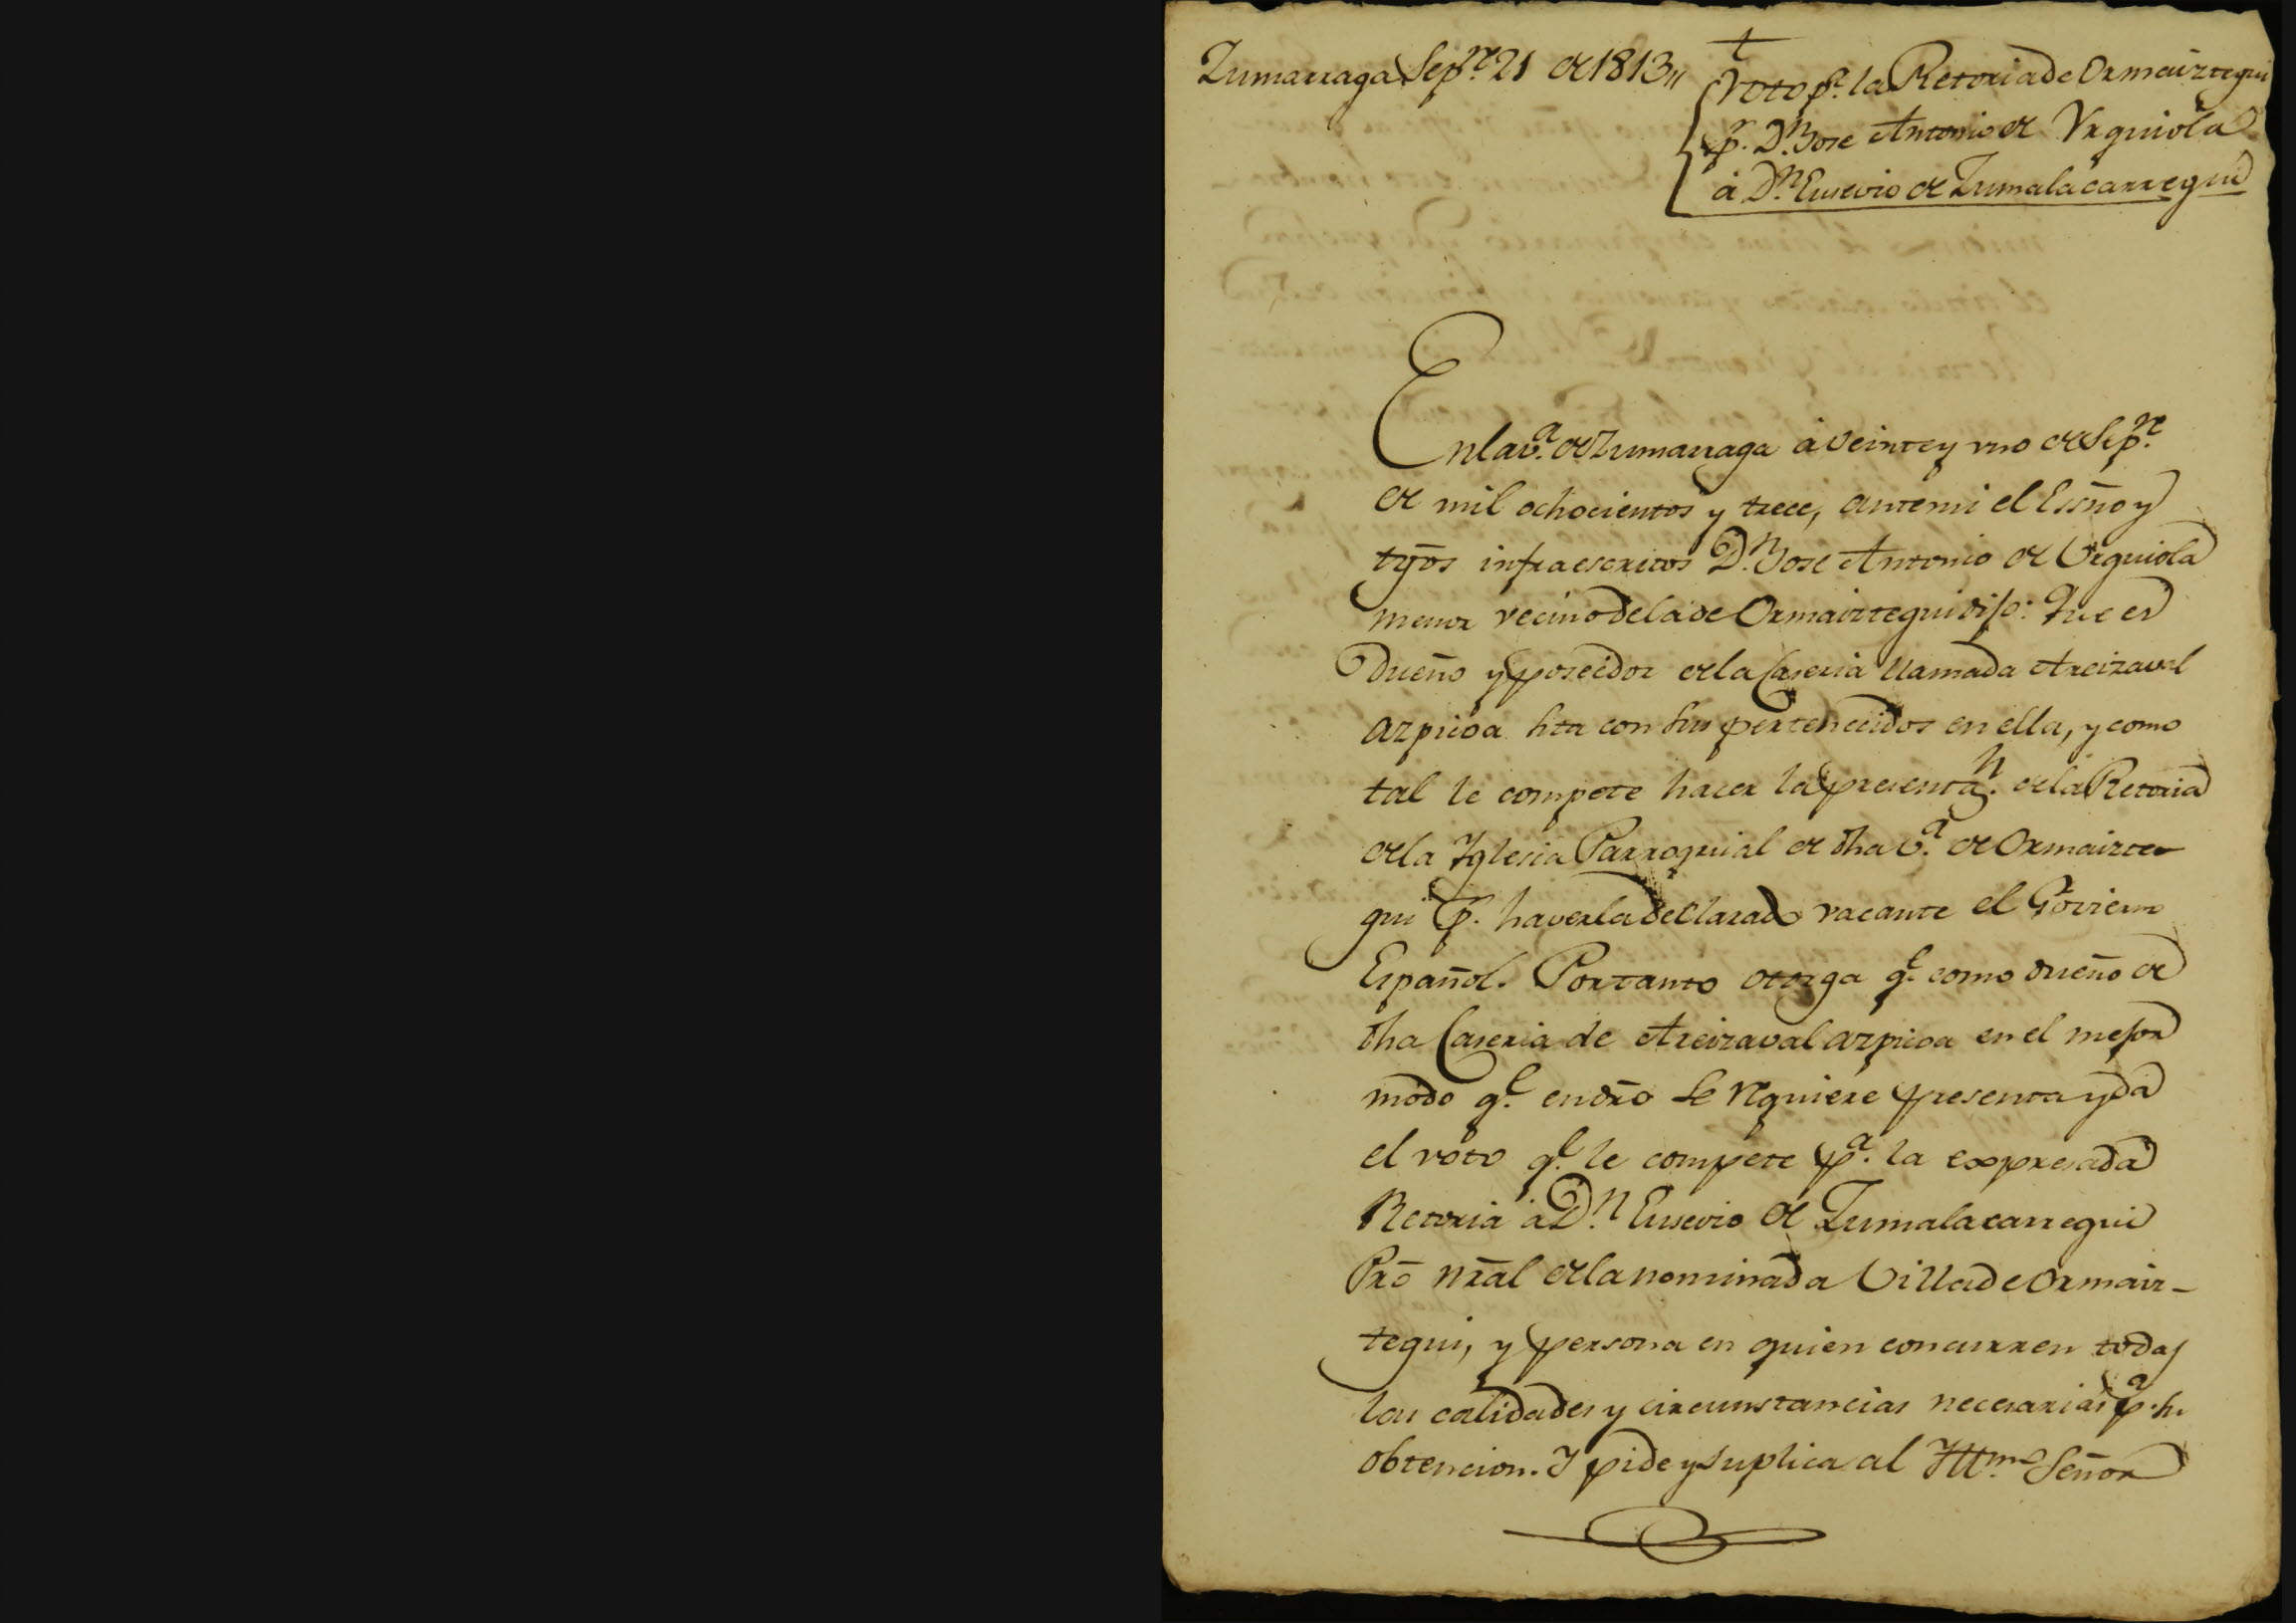 Zumarraga Sepre. 21 de 1813,,
+
Voto pa. la Retoria de Ormaiztegui
pr. Dn. Jose Antonio de Vrquiola
á Dn. Eusevio de Zumalacarregui
En la va. de Zumarraga á veinte y uno de Sepre.
de mil ochocientos y trece, ante mi el Essno y
tgos infraescritos Dn. Jose Antonio de Urquiola
menor vecino de la de Ormaiztegui dijo: Que es
dueño y poseedor de la Caseria llamada Areizaval
azpicoa sita con sus pertenecidos en ella, y como
tal le compete hacer la presentazn. de la Retoria
de la Yglesia Parroquial de dha va. de Ormaizte
gui pr. haverla declarado vacante el Govierno
Español. Por tanto otorga qe. como dueño de
dha Caseria de Areizaval azpicoa en el mejor
modo qe. en dro se requiere presenta y da
el voto qe. le compete pa. la expresada
Retoria á Dn. Eusevio de Zumalacarregui
Pro nral de la nominada Villa de Ormaiz-
tegui, y persona en quien concurren todas
las calidades y circunstancias necesarias pa. su
obtencion. Y pide y suplica al Yllmo. Señor